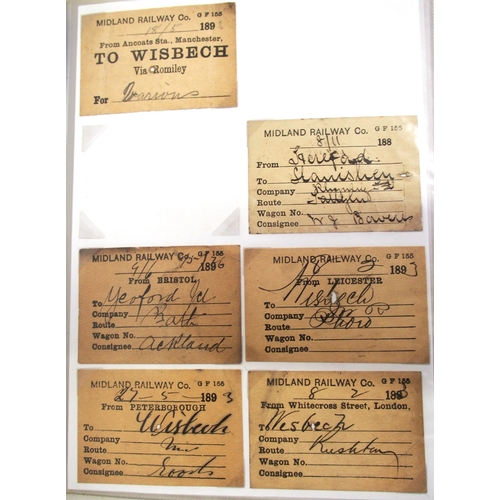 MIDLAND RAILWAY Co. G F 155
18/5 189
From Ancoats Sta., Manchester,
TO WISBECH
Via Romiley
For Various
MIDLAND RAILWAY Co. G F 155
8/11 188
From Hereford
To Llanishen
Company
Route
Wagon No.
Consignee W J Bowen
MIDLAND RAILWAY Co. G F 155
9/6 1896
From BRISTOL
To Yeoford Jct
Company
Route Bath
Wagon No.
Consignee Ackland
MIDLAND RAILWAY Co. G F 155
3 1893
From LEICESTER
To Wisbech
Company
Route
Wagon No.
Consignee
MIDLAND RAILWAY Co. G F 155
27-5-1893
From PETERBOROUGH
To Wisbech
Company
Route
Wagon No.
Consignee Goods
MIDLAND RAILWAY Co. G F 155
8 2 1893
From Whitecross Street, London,
To Wisbech
Company
Route
Wagon No.
Consignee